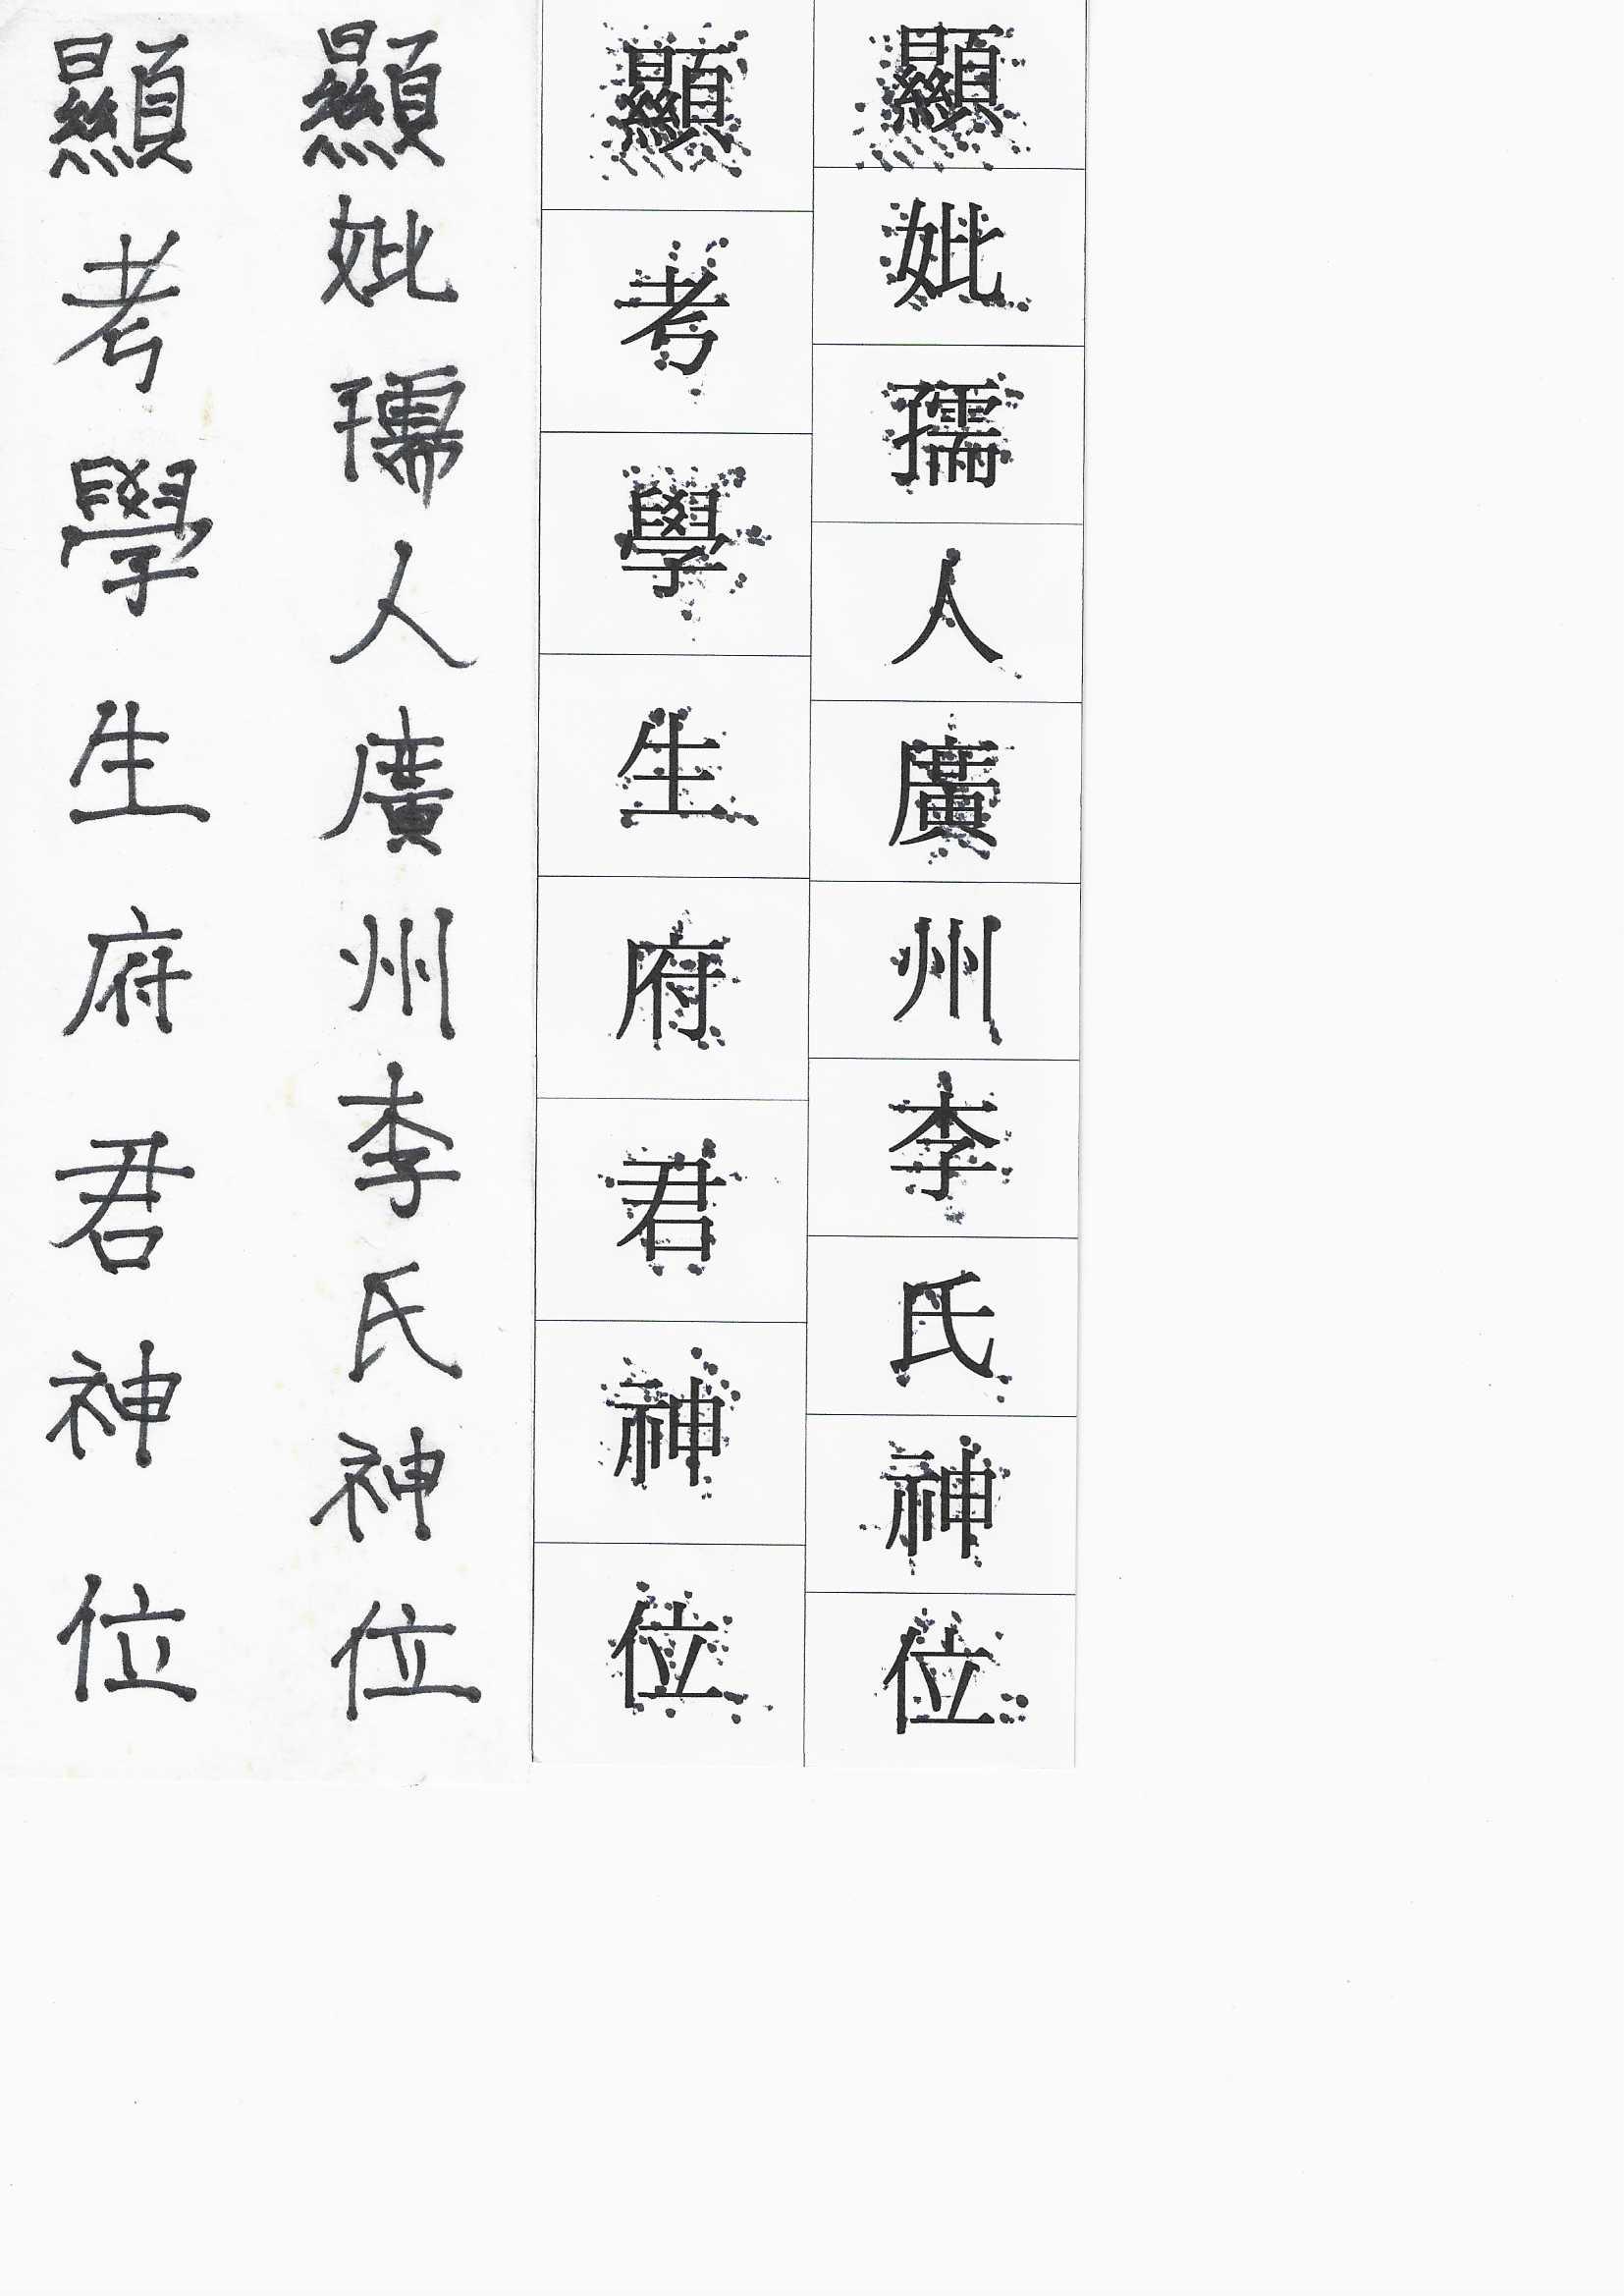 顯考學生府君神位
顯妣孺人廣州李氏神位
顯考學生府君神位
顯妣孺人廣州李氏神位